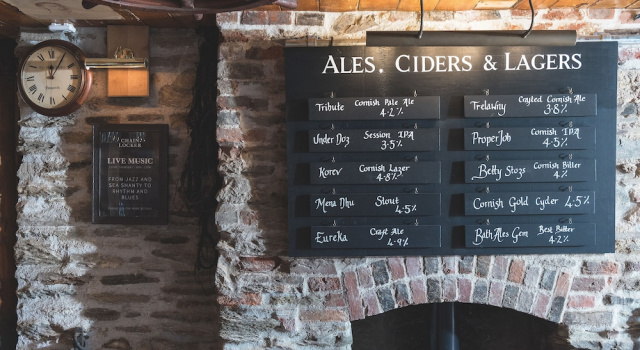 ALES, CIDERS & LAGERS
Tribute Cornish Pale Ale
4.2%
Under Dog Session IPA
3.5%
Korev Cornish Lager
4.8%
Mena Dhu Stout
4.5%
Eureka Craft Ale
4.9%
Trelawny Crafted Cornish Ale
3.8%
Proper Job Cornish IPA
4.5%
Betty Stogs Cornish Bitter
4%
Cornish Gold Cyder 4.5%
Bath Ales Gem Best Bitter
4.2%
CHAIN
LOCKER
LIVE MUSIC
FROM JAZZ AND
SEA SHANTY TO
RHYTHM AND
BLUES